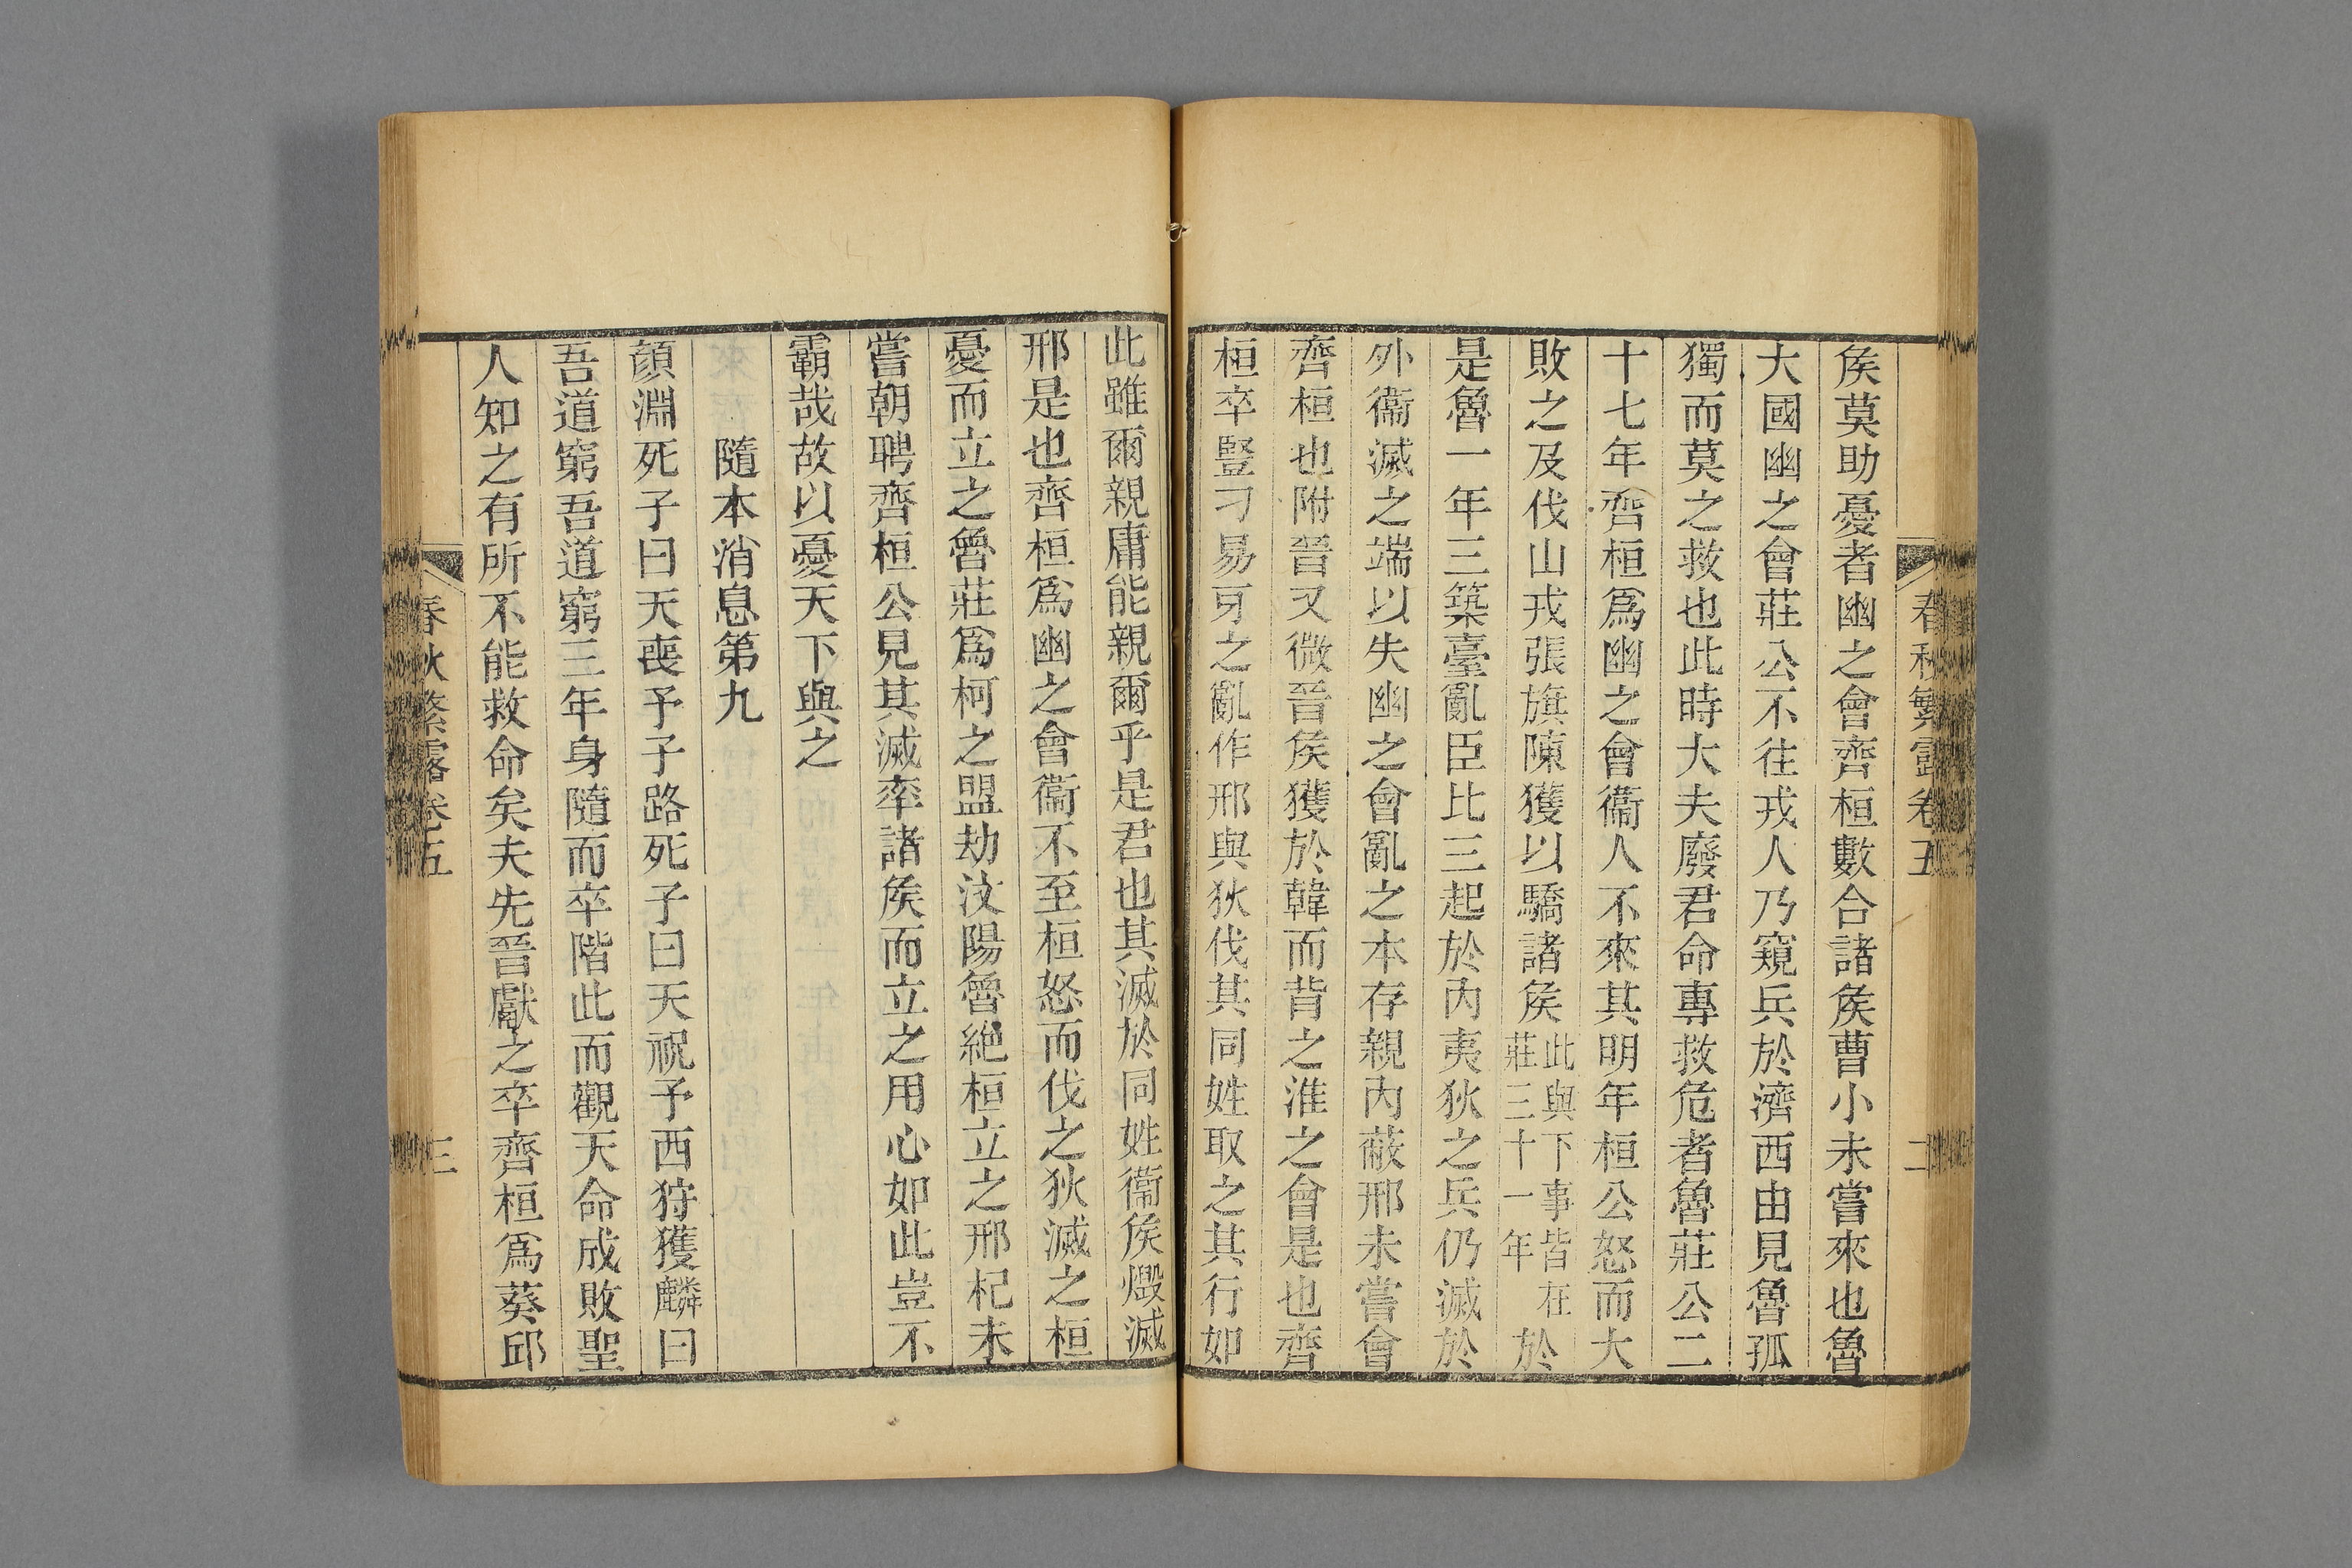 春秋繁露卷五 二
矦莫助憂者幽之會齊桓數合諸矦曹小未嘗來也魯
大國幽之會莊公不往戎人乃窺兵於濟西由見魯孤
獨而莫之救也此時大夫廢君命專救危者魯莊公二
十七年齊桓爲幽之會衞人不來其明年桓公怒而大
敗之及伐山戎張旗陳獲以驕諸矦此與下事皆在莊三十一年於
是魯一年三築臺亂臣比三起於內夷狄之兵仍滅於
外衞滅之端以失幽之會亂之本存親內蔽邢未嘗會
齊桓也附晉又微晉矦獲於韓而背之淮之會是也齊
桓卒豎刁易牙之亂作邢與狄伐其同姓取之其行如
此雖爾親庸能親爾乎是君也其滅於同姓衞矦燬滅
邢是也齊桓爲幽之會衞不至桓怒而伐之狄滅之桓
憂而立之魯莊爲柯之盟劫汶陽魯絕桓立之邢杞未
嘗朝聘齊桓公見其滅率諸矦而立之用心如此豈不
霸哉故以憂天下與之
隨本消息第九
顏淵死子曰天喪予子路死子曰天祝予西狩獲麟曰
吾道窮吾道窮三年身隨而卒階此而觀天命成敗聖
人知之有所不能救命矣夫先晉獻之卒齊桓爲葵邱
春秋繁露卷五 三